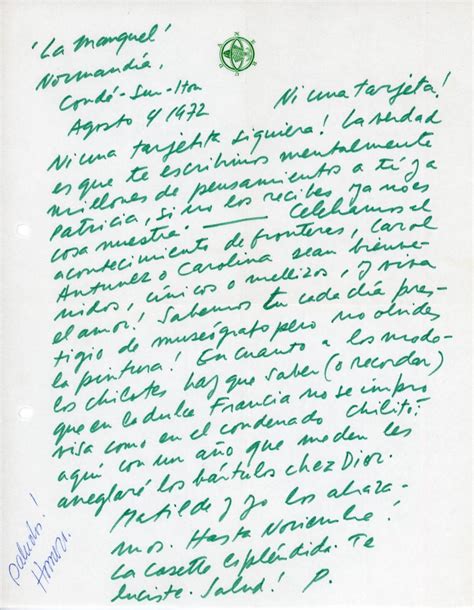 'La Manquel'
Normandía,
Condé-Sur-Iton
Agosto 4 1972
Ni una tarjeta!
Ni una tarjetita siquiera! La verdad
es que te escribimos mentalmente
millones de pensamientos a tí y a
Patricia, si no los recibes ya no es
cosa nuestra. Celebramos el
acontecimiento de fronteres, Carol
Antunez o Carolina sean bienve-
nidos, únicos o mellizos, y viva
el amor! Sabemos tu cada día pres-
tigio de museógrafo pero no olvides
la pintura! En cuanto a los modo-
los chilotes hay que saber (o recordar)
que en la dulce Francia no se impro
visa como en el condenado chilito:
aquí con un año que me den les
arreglaré los bártulos chez Dior.
Matilde y yo los abraza-
mos. Hasta Noviembre!
La casette espléndida. Te
luciste. Salud! P.
saludos!